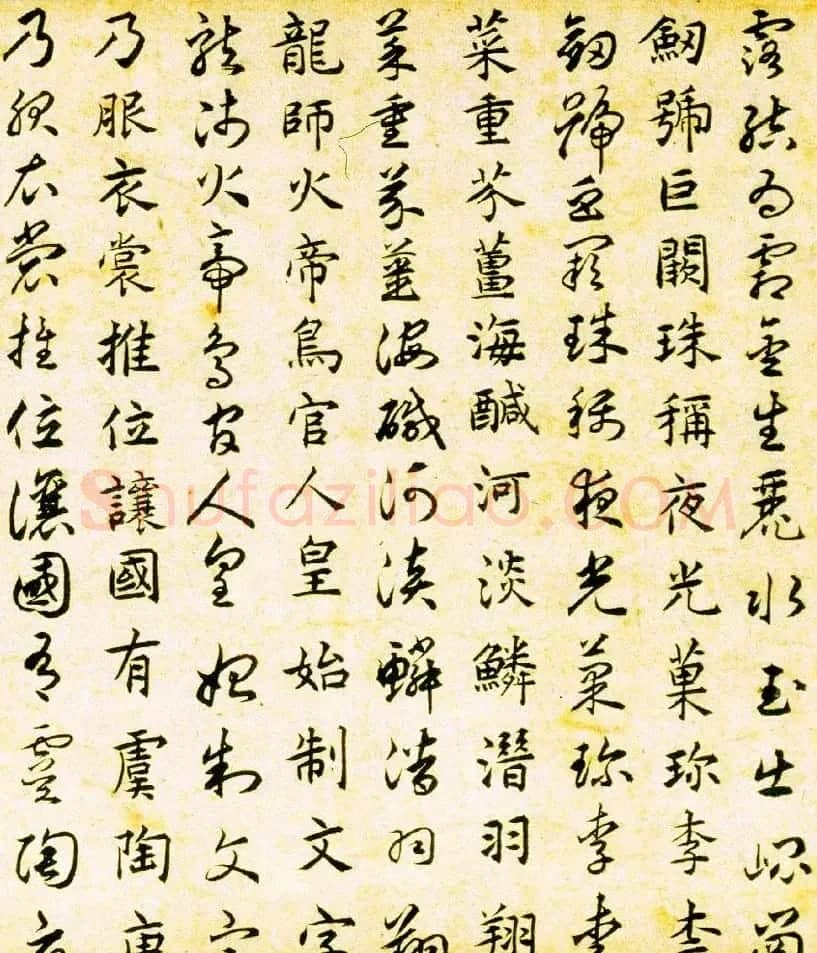 露結為霜金生麗水玉出崑岡
劒號巨闕珠稱夜光菓珍李柰
劒號巨闕珠稱夜光菓珍李柰
菜重芥薑海醎河淡鱗潛羽翔
菜重芥薑海醎河淡鱗潛羽翔
龍師火帝鳥官人皇始制文字
龍師火帝鳥官人皇始制文字
乃服衣裳推位讓國有虞陶唐
乃服衣裳推位讓國有虞陶唐
Shufaziliao.COM